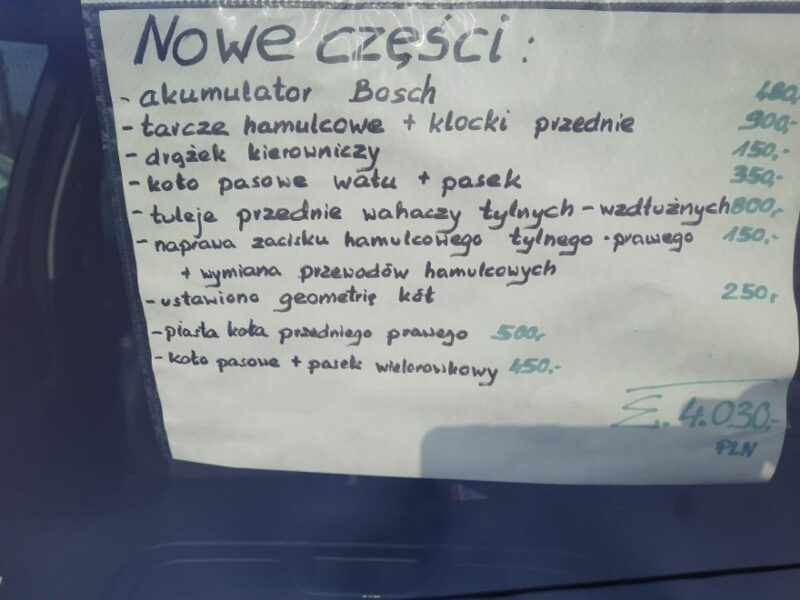 Nowe części:
- akumulator Bosch 480,-
- tarcze hamulcowe + klocki przednie 900,-
- drążek kierowniczy 150,-
- koło pasowe wału + pasek 350,-
- tuleje przednie wahaczy tylnych - wzdłużnych 800,-
- naprawa zacisku hamulcowego tylnego - prawego 150,-
+ wymiana przewodów hamulcowych
- ustawiono geometrię kół 250,
- piasta koła przedniego prawego 500,-
- koło pasowe + pasek wielorowkowy 450.-
Σ. 4.030,-
PLN